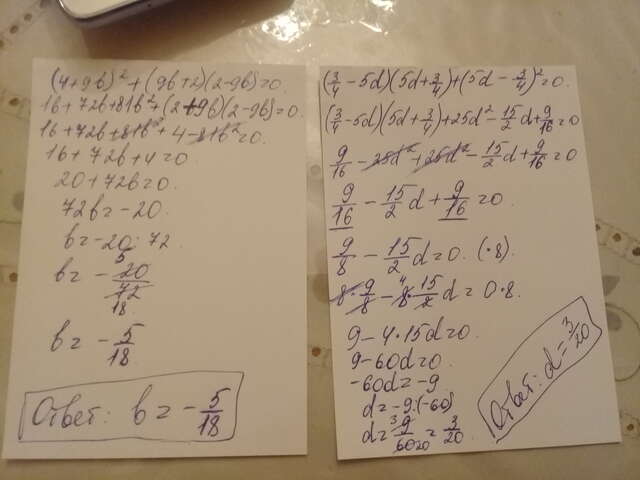 (4+9b)² + (9b+2)(2-9b)=0.
16+72b+81b²+(2+9b)(2-9b)=0.
16+72b+81b²+4-81b²=0.
16+72b+4=0.
20+72b=0.
72b=-20.
b=-20:72
b= - 5 20/72 18
b= - 5/18
Ответ: b= - 5/18
(3/4 - 5d)(5d+3/4)+(5d - 3/4)²=0.
(3/4 - 5d)(5d+3/4)+25d² - 15/2 d+9/16=0
9/16 - 25d²+25d² - 15/2 d+9/16=0
9/16 - 15/2 d+9/16=0.
9/8 - 15/2 d=0. (·8).
8·9/8 - 4 8·15/2 d=0·8.
9-4·15d=0.
9-60d=0.
-60d=-9.
d=-9:(-60)
d= 3 9/60 20 = 3/20.
Ответ: d=3/20